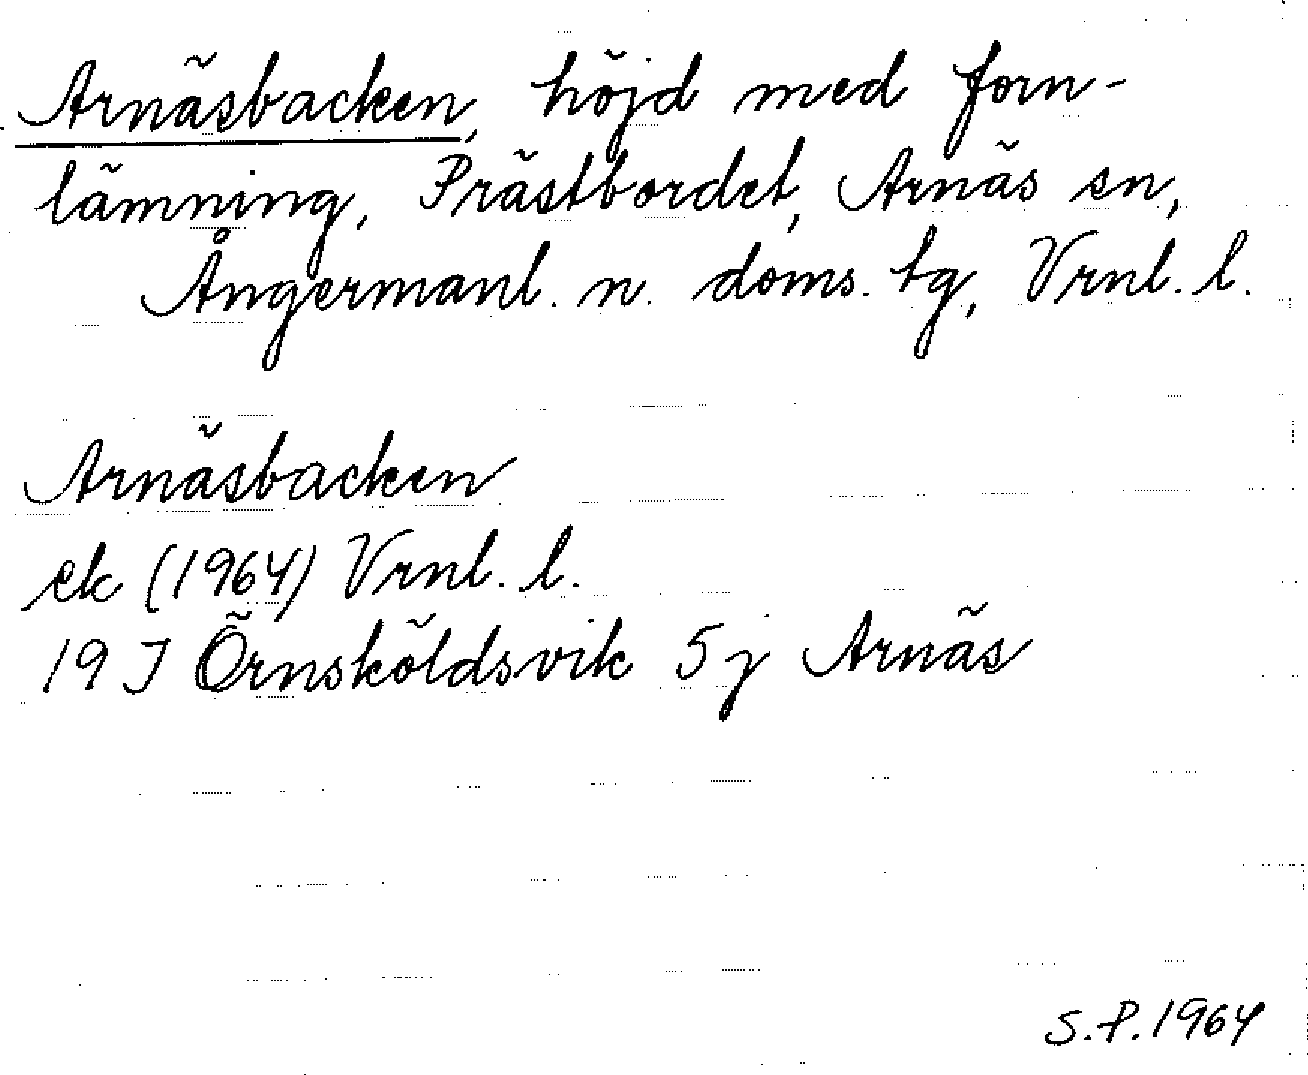 Arnäsbacken, höjd med forn-
lämning, Prästbordet, Arnäs sn,
Ångermanl. n. doms. tg, Vrnl. l.
Arnäsbacken
ek (1964) Vrnl. l.
19 J Örnsköldsvik 5 j Arnäs
S.P. 1964